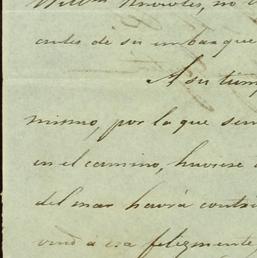 Knowles, no
antes de su embarque
A su tiem
mismo, por lo que sem
en el camino, huviese
del mar havrá contri
vino á esa felizmente,